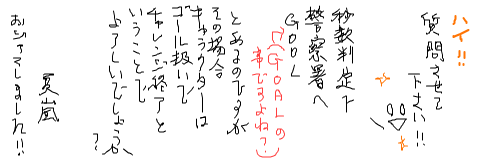 ハイ!!
質問させて
下さい!!
秒数判定で
警察署へ
GOOL
(「GOALの
事ですよね?)
とあるのですが
その場合
キャラクターは
ゴール扱いで
チャレンジ終了と
いうことで
よろしいでしょうか
?
おじゃましました!!
夏嵐